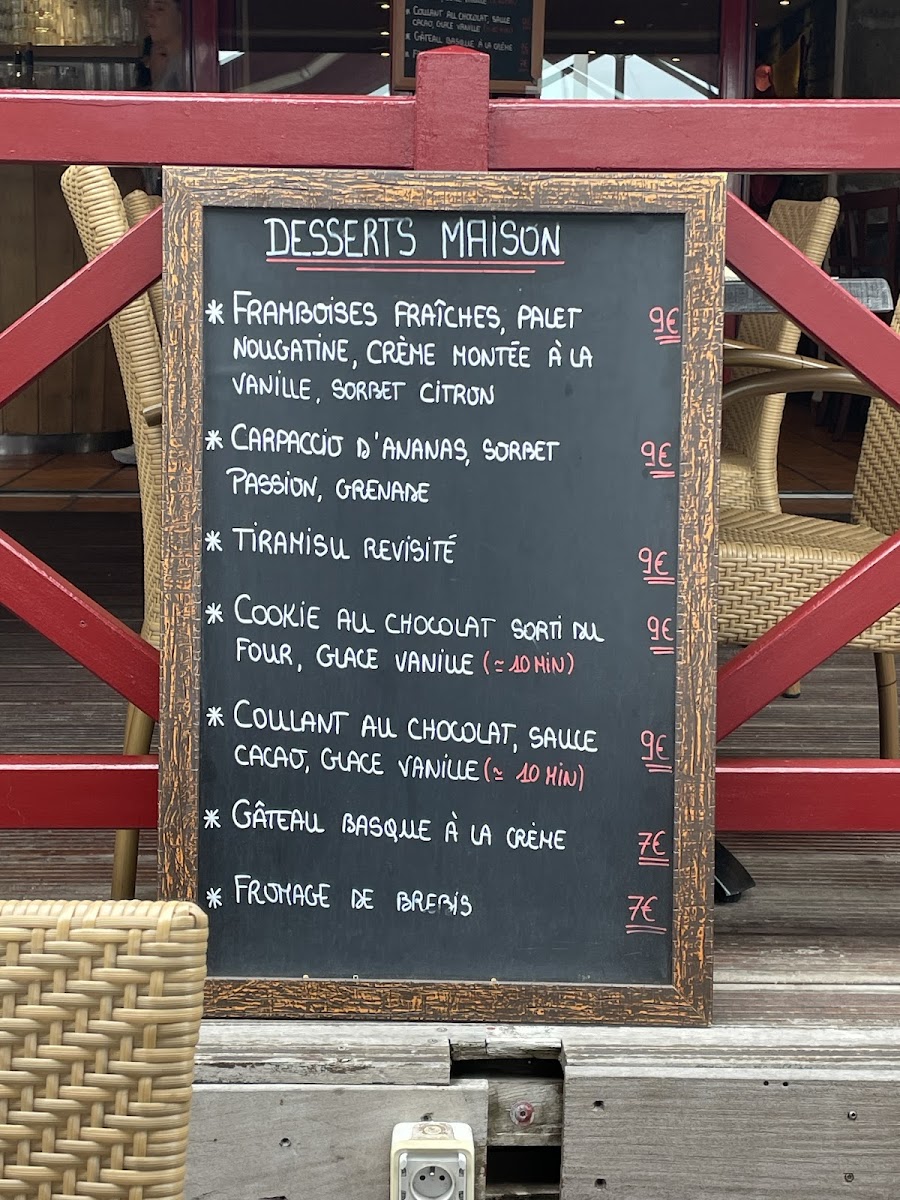 COULANT AU CHOCOLAT, SAUCE
CACAO, GLACE VANILLE
GÂTEAU BASQUE À LA CRÈME
DESSERTS MAISON
* FRAMBOISES FRAÎCHES, PALET 9€
NOUGATINE, CRÈME MONTÉE À LA
VANILLE, SORBET CITRON
* CARPACCIO D'ANANAS, SORBET 9€
PASSION, GRENADE
* TIRAMISU REVISITÉ 9€
* COOKIE AU CHOCOLAT SORTI DU 9€
FOUR, GLACE VANILLE (≃ 10 MIN)
* COULANT AU CHOCOLAT, SAUCE 9€
CACAO, GLACE VANILLE (≃ 10 MIN)
* GÂTEAU BASQUE À LA CRÈME 7€
* FROMAGE DE BREBIS 7€